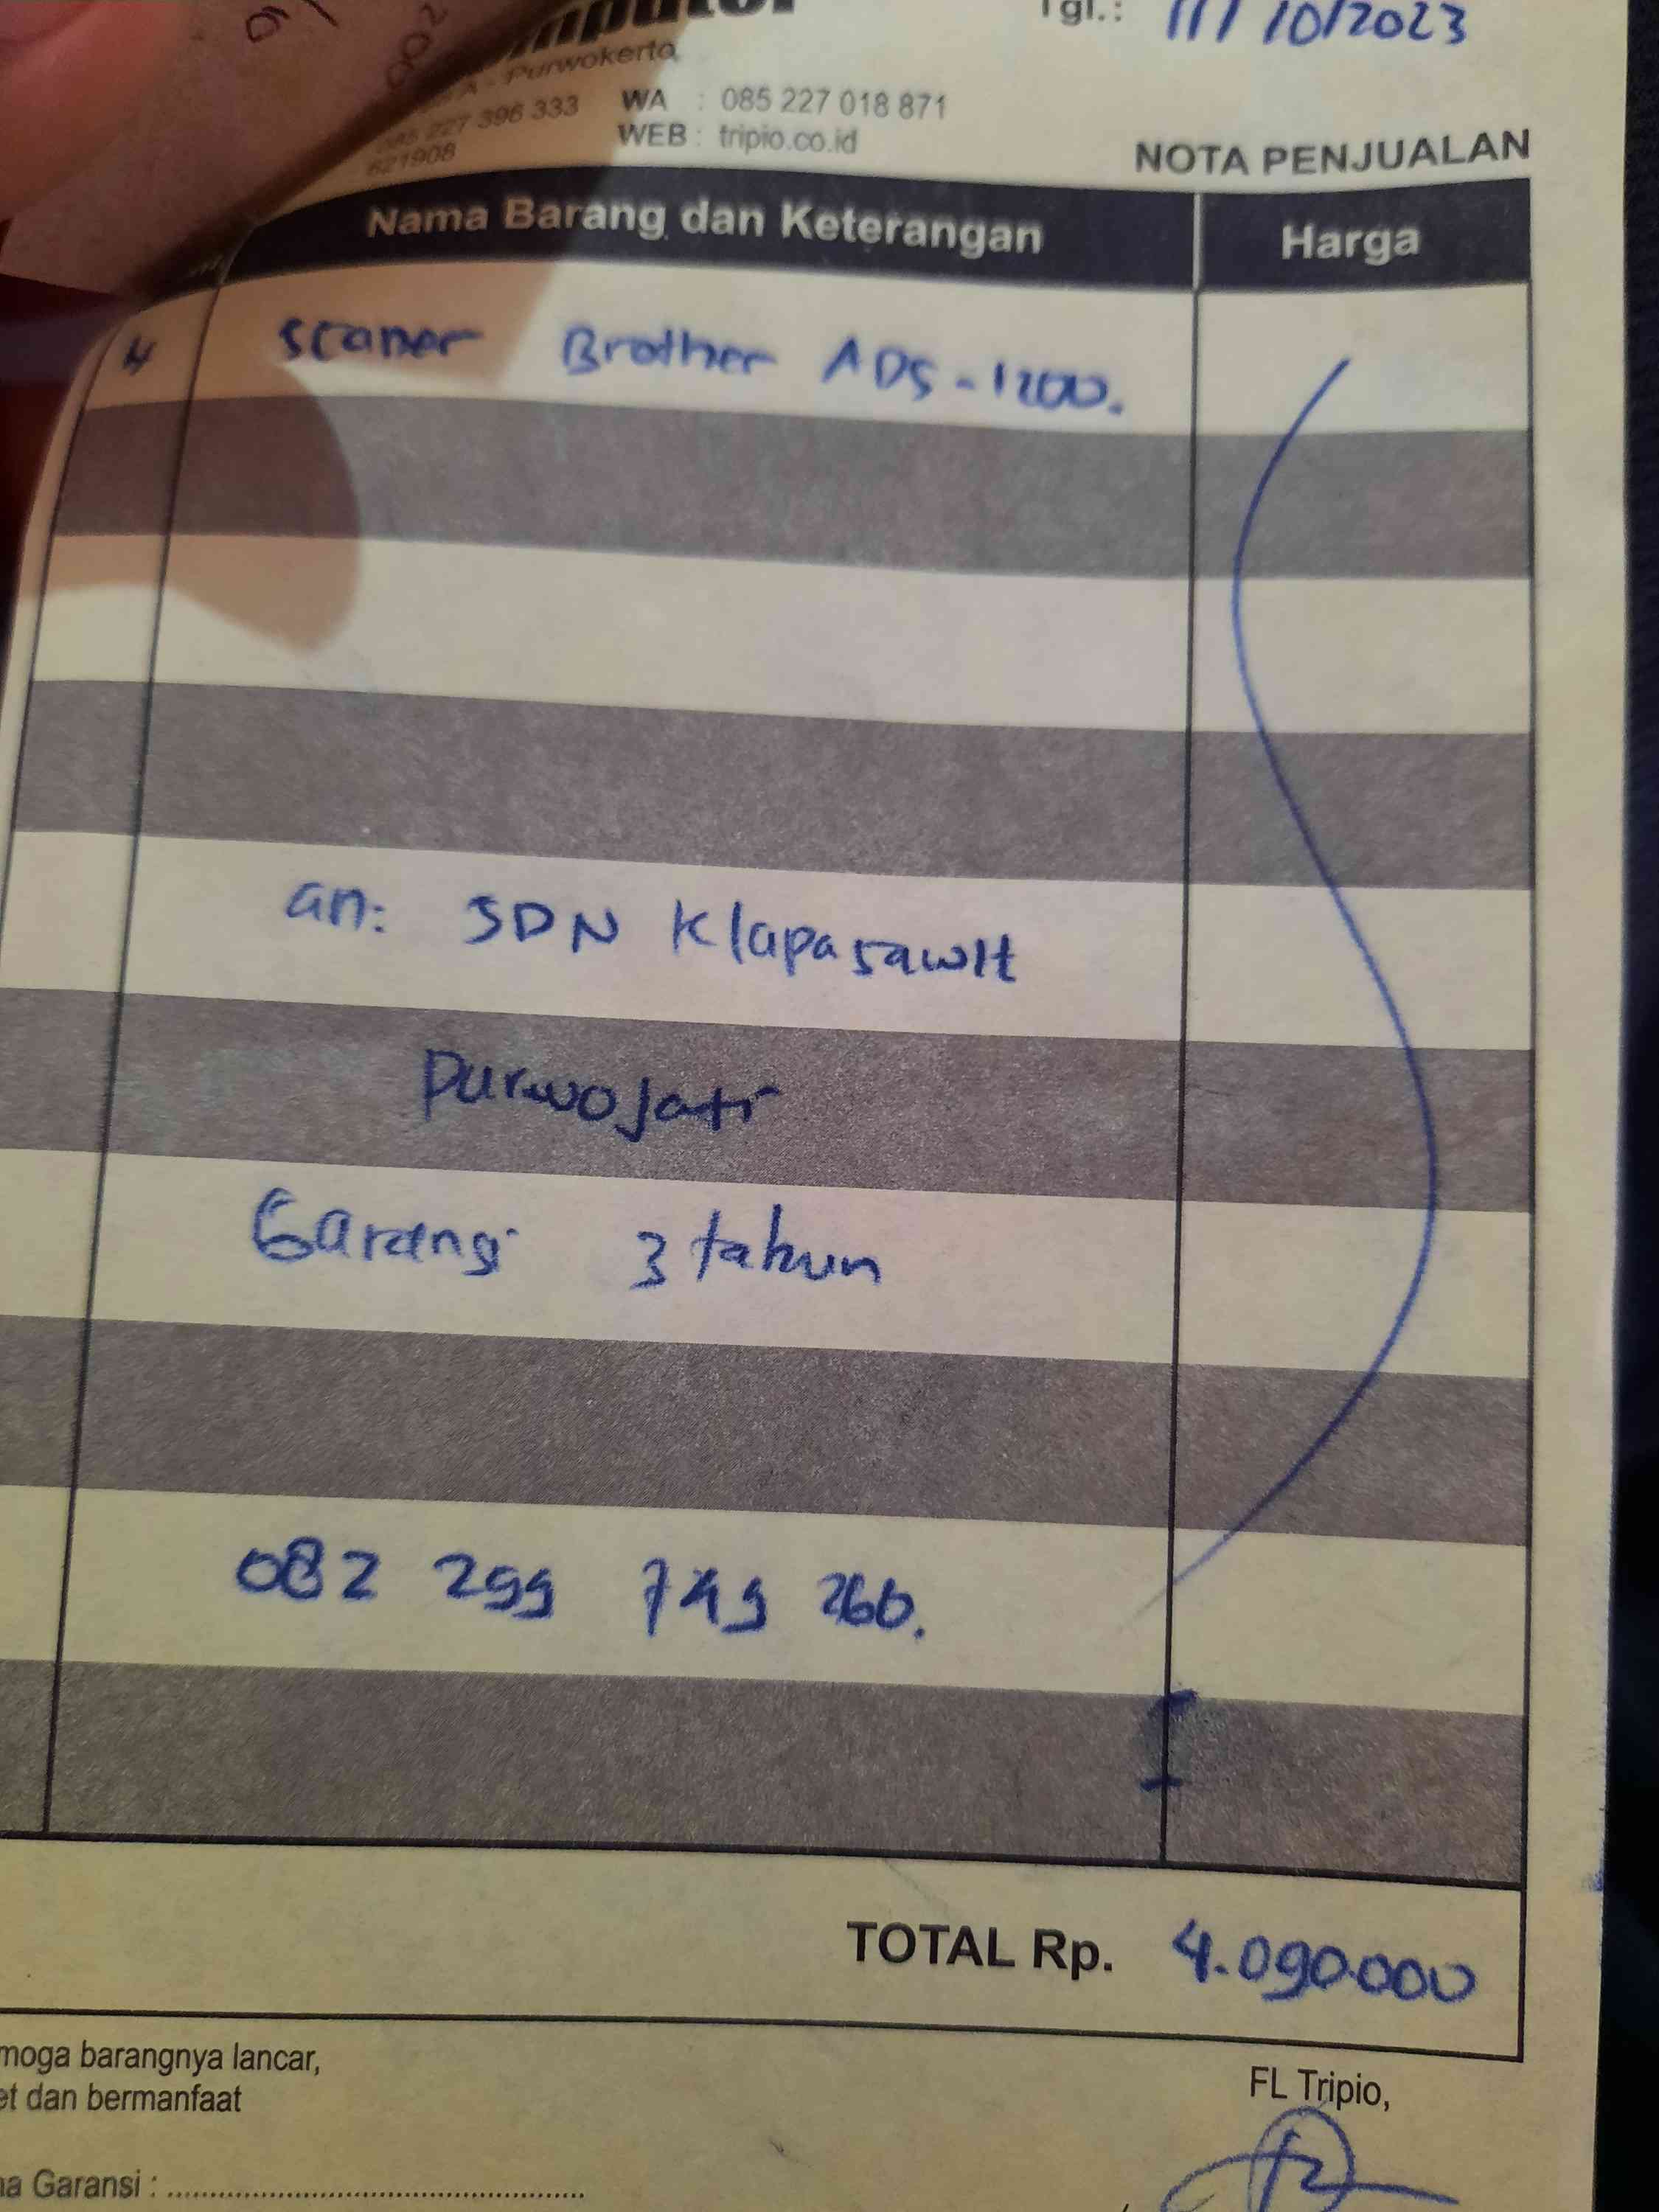 Tgl.: 11/10/2023
Purwokerto
085 227 396 333 WA : 085 227 018 871
621908 WEB : tripio.co.id
NOTA PENJUALAN
Nama Barang dan Keterangan Harga
Scaner Brother ADS-1200.
an: SDN Klapasawit
Purwojati
Garansi 3 tahun
082 299 749 266.
TOTAL Rp. 4.090.000
moga barangnya lancar,
et dan bermanfaat
FL Tripio,
na Garansi :